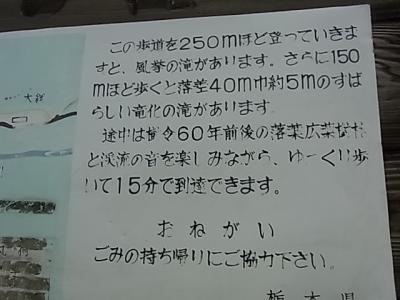 この歩道を250mほど登っていきま
すと、風挙の滝があります。さらに150
mほど歩くと落差40m巾約5mのすば
らしい竜化の滝があります。
途中は樹令60年前後の落葉広葉
と渓流の音を楽しみながら、ゆっくり歩
いて15分で到達できます。
おねがい
ごみの持ち帰りにご協力下さい。
栃木県